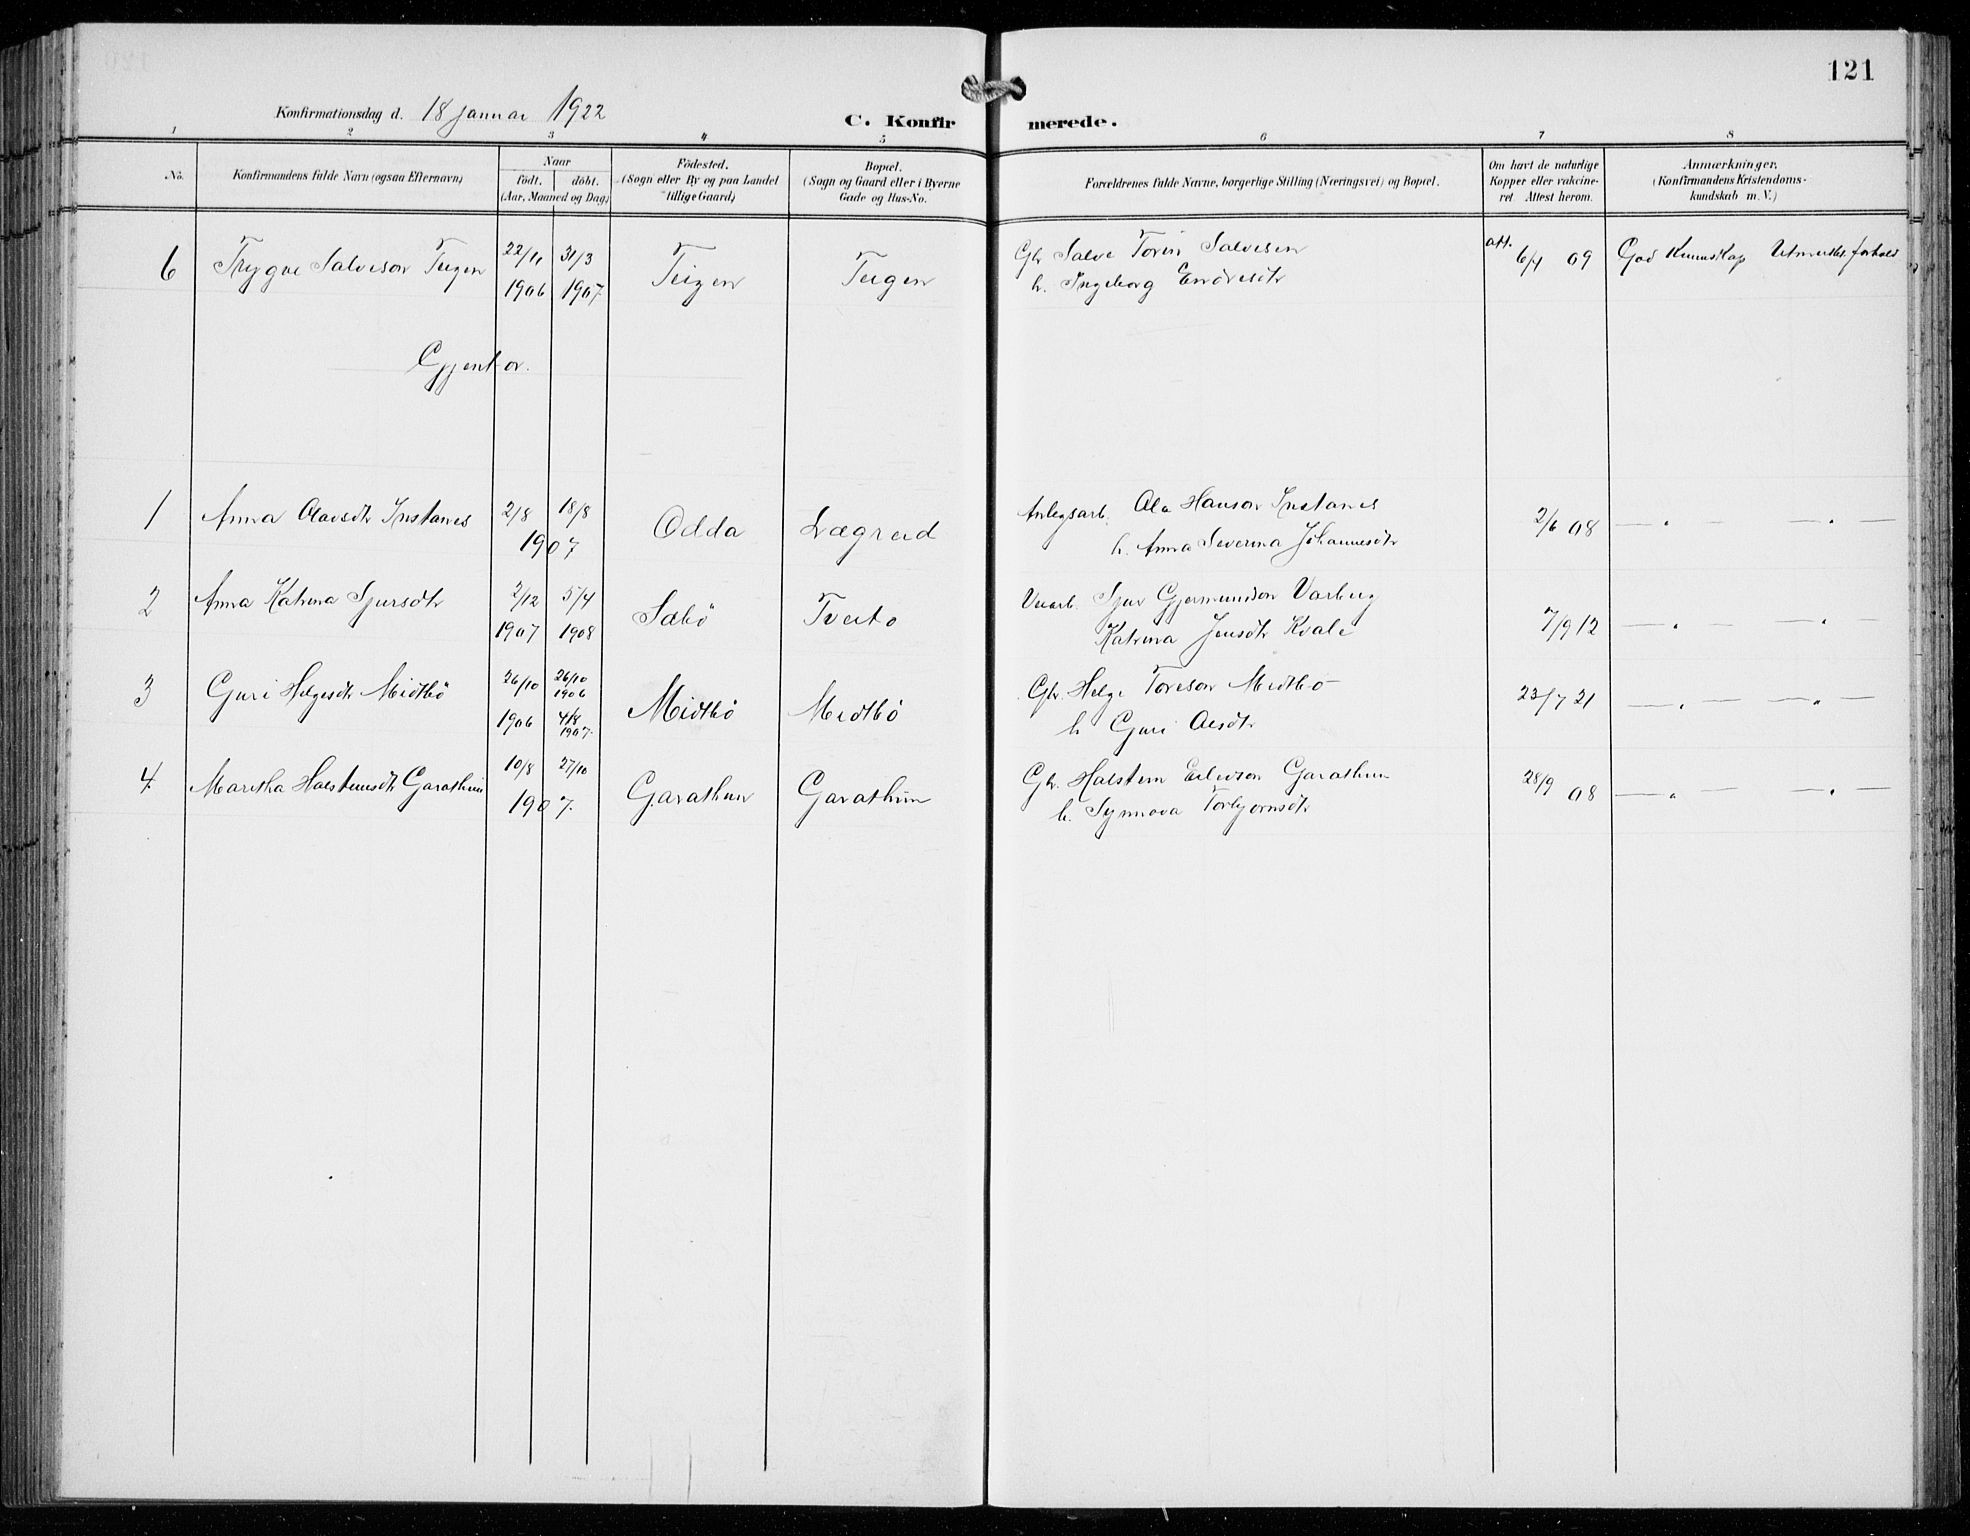 121
Konfirmationsdag d. 18 januar 1922
C. Konfirmerede.
1 2 3 4 5 6 7 8
No.
Konfirmandens fulde Navn (ogsaa Efternavn)
Naar
födt. döbt.
(Aar, Maaned og Dag)
Födested.
(Sogn eller By og paa Landet
tillige Gaard)
Bopæl.
(Sogn og Gaard eller i Byerne
Gade og Hus-No.
Forældrenes fulde Navne, borgerlige Stilling (Næringsvei) og Bopæl.
Om havt de naturlige
Kopper eller vakcine-
ret. Attest herom.
Anmærkninger.
(Konfirmandens Kristendoms-
kundskab m. V.)
6 Trygve Salveson Teigen 22/11 1906 31/3 1907 Teigen Teigen
Gbr Salve Torin Salvesen
h. Ingeborg Endresdtr
att. 6/4 09 God Kunnskap Utmerket forhold
Gjentor.
1 Anna Olavsdtr Instanes 2/8 18/8 1907 Odda Lægreid
Anlegsarb. Ola Hanson Instanes
h. Anna Severina Johannesdtr
2/6 08 — " — — " —
2 Anna Katrina Sjursdtr 2/12 1907 5/4 1908 Sæbö Tveito
Sjur Gjermundson Varberg
Katrina Jensdtr Kvale
7/9 12 — " — — " —
3 Guri Helgesdtr Midtbö 26/10 1906 26/10 1906 4/8 1907. Midtbö Midtbö
Gbr. Helge Toreson Midtbö
h Guri Olsdtr
23/7 21 — " — — " —
4. Maritha Halsteinsdtr Garathun 10/8 27/10 1907. Garathun Garathun
Gbr. Halstein Eilevson Garathun
h. Synnova Torbjornsdtr
28/9 08 — " — — " —